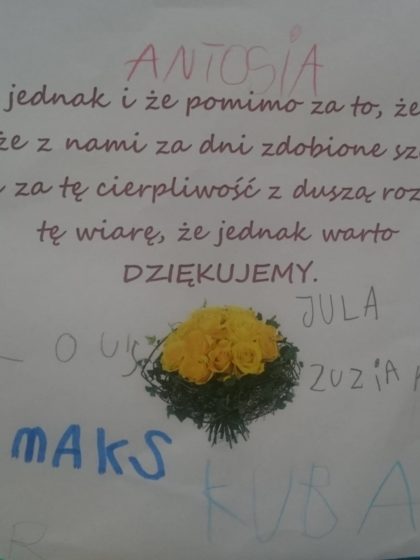 ANTOSIA
jednak i że pomimo za to, że
że z nami za dni zdobione
za tę cierpliwość z duszą
tę wiarę, że jednak warto
DZIĘKUJEMY.
JULA
LOUIS
ZUZIA
MAKS
KUBA
R